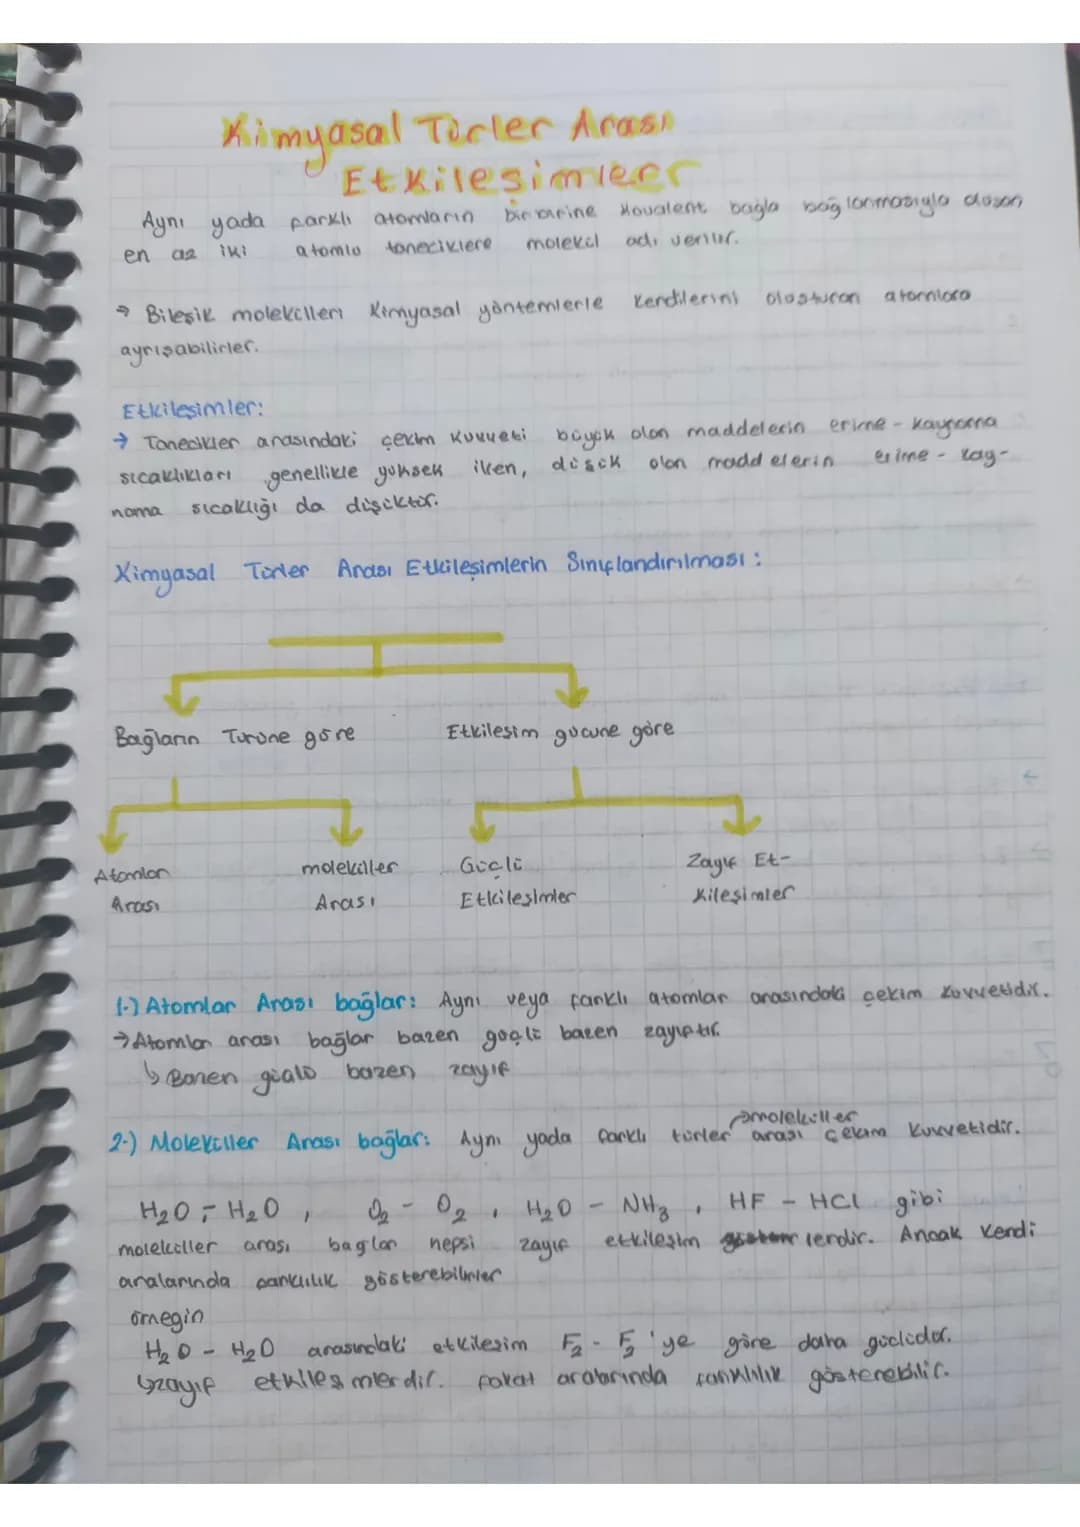 Kimyasal Türler Arası
Etkileşimleer
Aynı yada farklı atomların birbirine kovalent bağla bağlanmasıyla oluşan
en az iki atomlu taneciklere molekül adı verilir.
→ Bileşik molekülleri kimyasal yöntemlerle kendilerini oluşturan atomlara
ayrışabilirler.
Etkileşimler:
→ Tanecikler arasındaki çekim kuvveti büyük olan maddelerin erime - kaynama
sıcaklıkları genellikle yüksek iken, düşük olan maddelerin erime - kay-
nama sıcaklığı da düşüktür.
Kimyasal Türler Arası Etkileşimlerin Sınıflandırılması :
Bağların Türüne göre
Etkilesim gücüne göre
Atomlar
Arası
moleküller
Arası
Güçlü
Etkileşimler
Zayıf Et-
kileşimler
1-) Atomlar Arası bağlar: Aynı veya farklı atomlar arasındaki çekim kuvvetidir.
→ Atomlar arası bağlar bazen güçlü bazen zayıftır.
↳ Bazen güçlü bazen zayıf
→moleküller
2-) Moleküller Arası bağlar: Aynı yada farklı türler arası çekim kuvvetidir.
H₂O - H₂O , O₂ - O₂ , H₂O - NH₃ , HF - HCl gibi
moleküller arası bağlar hepsi zayıf etkileşim lerdir. Ancak kendi
aralarında farklılık gösterebilirler
örnegin
H₂O - H₂O arasındaki etkileşim F₂ - F₂'ye göre daha güçlüdür.
↳zayıf etkileşimlerdir. fakat aralarında farklılık gösterebilir.